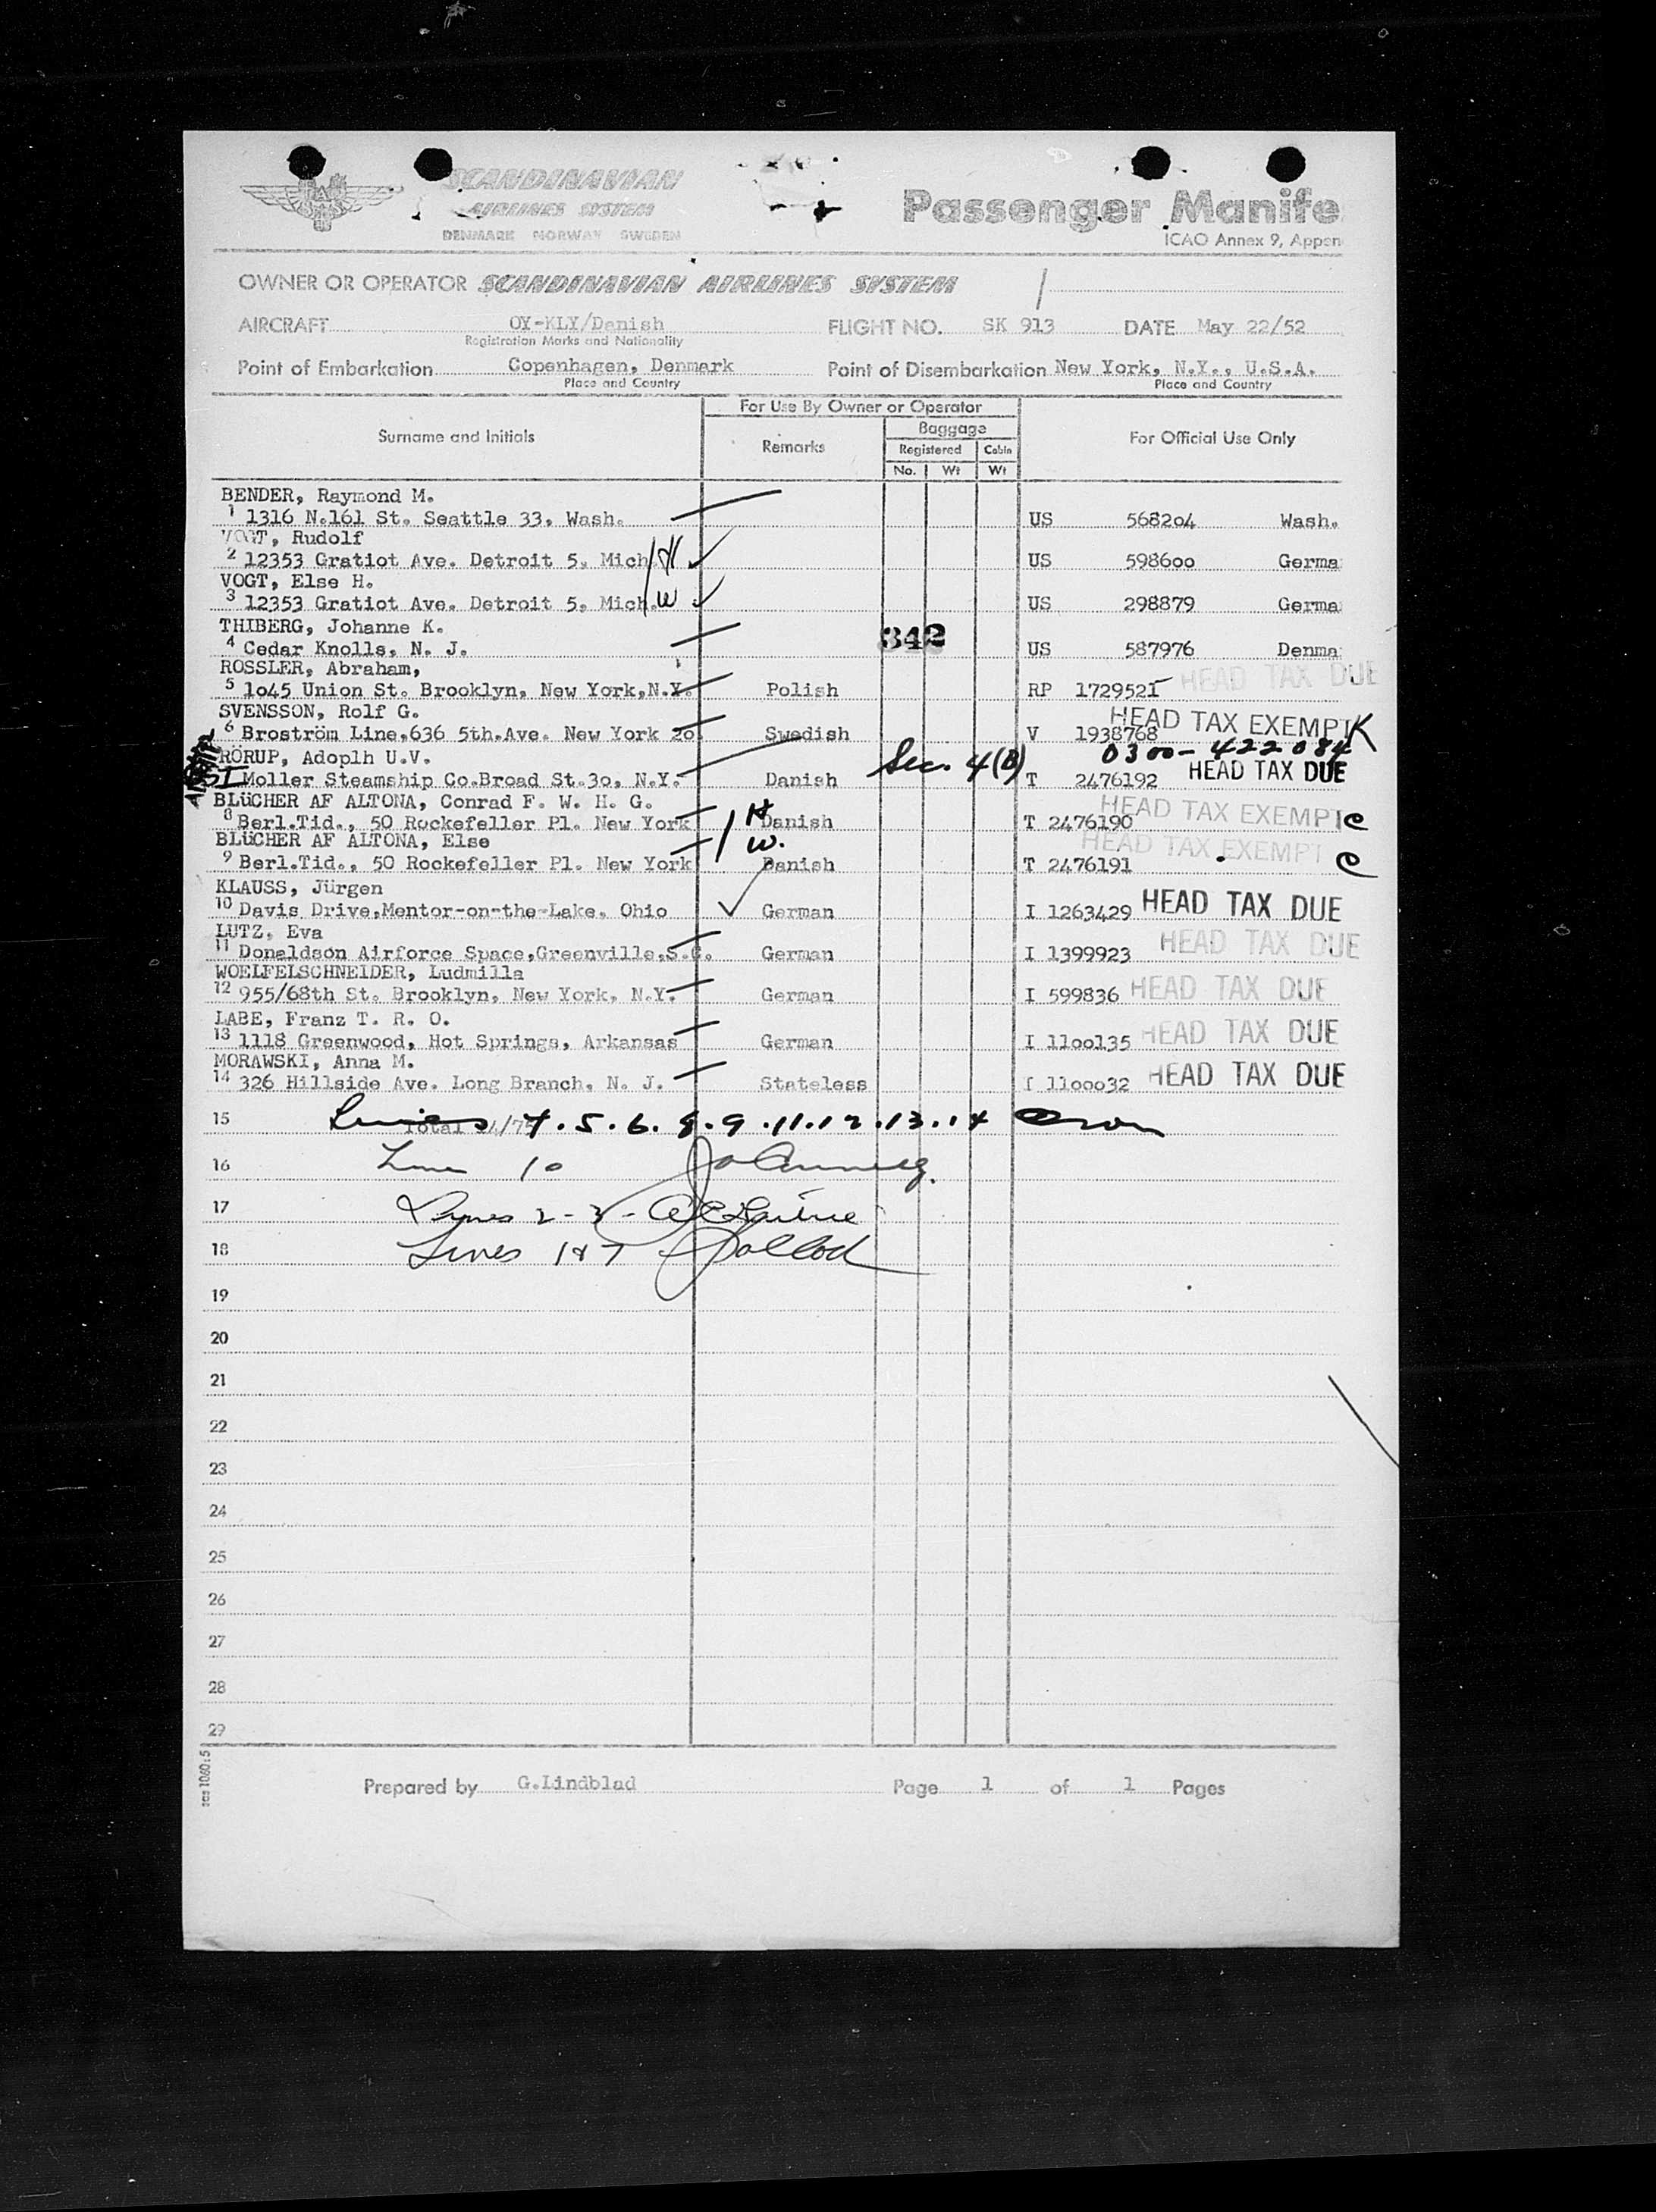 SCANDINAVIAN
AIRLINES SYSTEM
DENMARK NORWAY SWEDEN
Passenger Manife
ICAO Annex 9, Appen
OWNER OR OPERATOR SCANDINAVIAN AIRLINES SYSTEM
AIRCRAFT OY-KLY/Danish FLIGHT NO. SK 913 DATE May 22/52
Registration Marks and Nationality
Point of Embarkation Copenhagen, Denmark Point of Disembarkation New York, N.Y., U.S.A.
Place and Country Place and Country
For Use By Owner or Operator
Surname and Initials Remarks Baggage For Official Use Only
Registered Cabin
No. Wt Wt
BENDER, Raymond M.
1 1316 N.161 St. Seattle 33, Wash. US 568204 Wash.
VOGT, Rudolf
2 12353 Gratiot Ave. Detroit 5, Mich. H US 598600 Germa
VOGT, Else H.
3 12353 Gratiot Ave. Detroit 5, Mich. W US 298879 Germa
THIBERG, Johanne K. 342
4 Cedar Knolls, N. J. US 587976 Denma
ROSSLER, Abraham, HEAD TAX DUE
5 1o45 Union St. Brooklyn, New York,N.Y. Polish RP 1729521
SVENSSON, Rolf G. HEAD TAX EXEMPT K
6 Broström Line,636 5th.Ave. New York 2o Swedish V 1938768
0300-422084
RÖRUP, Adoplh U.V. Sec. 4(B) HEAD TAX DUE
Moller Steamship Co.Broad St.3o, N.Y. Danish T 2476192
BLüCHER AF ALTONA, Conrad F. W. H. G. H HEAD TAX EXEMPT C
8 Berl.Tid., 50 Rockefeller Pl. New York Danish T 2476190
BLüCHER AF ALTONA, Else W. HEAD TAX EXEMPT C
9 Berl.Tid., 50 Rockefeller Pl. New York Danish T 2476191
KLAUSS, Jürgen
10 Davis Drive,Mentor-on-the-Lake, Ohio German I 1263429 HEAD TAX DUE
LUTZ, Eva
11 Donaldson Airforce Space,Greenville,S.C. German I 1399923 HEAD TAX DUE
WOELFELSCHNEIDER, Ludmilla
12 955/68th St. Brooklyn, New York, N.Y. German I 599836 HEAD TAX DUE
LABE, Franz T. R. O.
13 1118 Greenwood, Hot Springs, Arkansas German I 11oo135 HEAD TAX DUE
MORAWSKI, Anna M.
14 326 Hillside Ave. Long Branch, N. J. Stateless I 11ooo32 HEAD TAX DUE
15 Total Lines 4.5.6.8.9.11.12.13.14
16 Line 10
17 Lines 2-3-
18 Lines 1&7
19
20
21
22
23
24
25
26
27
28
29
sas 1060:5
Prepared by G.Lindblad Page 1 of 1 Pages